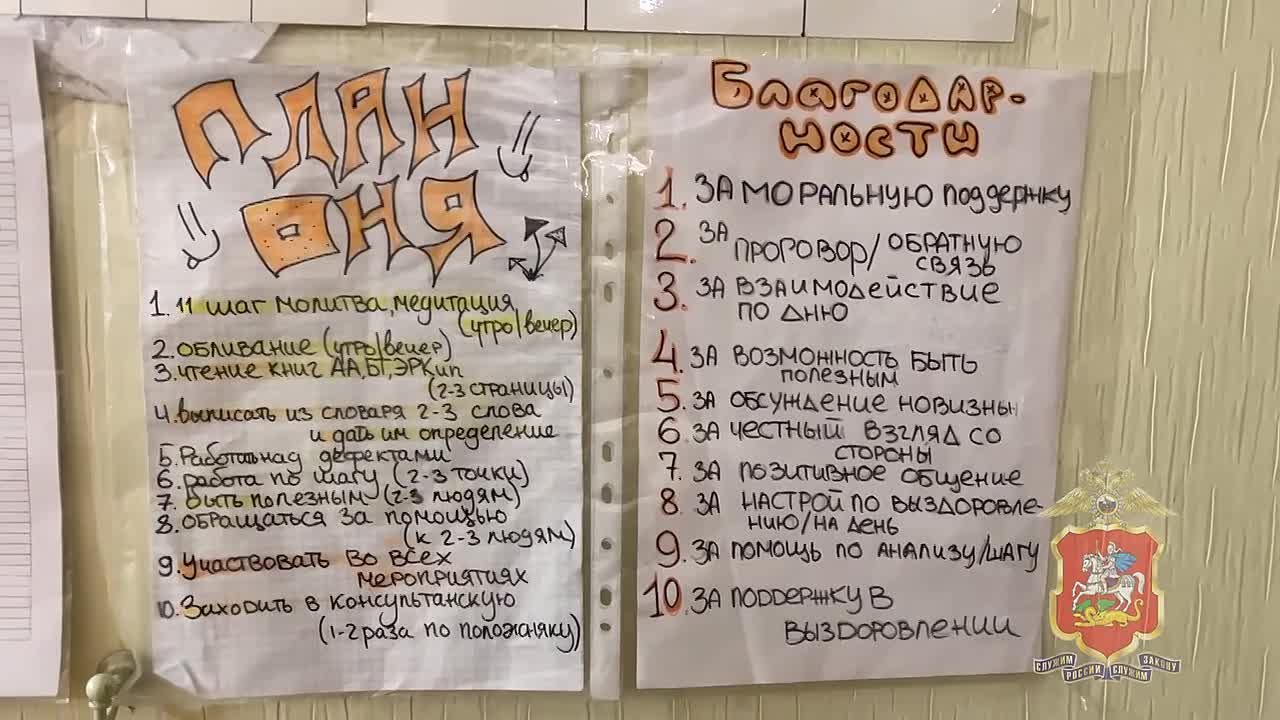 ПЛАН
ДНЯ
1. 11 шаг молитва, медитация
(утро/вечер)
2. обливание (утро/вечер)
3. чтение книг АА, БТ, ЭРКип
(2-3 страницы)
4. выписать из словаря 2-3 слова
и дать им определение
5. Работа над дефектами
6. работа по шагу (2-3 точки)
7. быть полезным (2-3 людям)
8. обращаться за помощью
(к 2-3 людям)
9. Участвовать во всех
мероприятиях
10. Заходить в консультанскую
(1-2 раза по положняку)
БЛАГОДАР-
НОСТИ
1. ЗА МОРАЛЬНУЮ поддержку
2. ЗА ПРОГОВОР/ОБРАТНУЮ
СВЯЗЬ
3. ЗА ВЗАИМОДЕЙСТВИЕ
ПО ДНЮ
4. ЗА ВОЗМОЖНОСТЬ БЫТЬ
ПОЛЕЗНЫМ
5. ЗА ОБСУЖДЕНИЕ НОВИЗНЫ
6. ЗА ЧЕСТНЫЙ ВЗГЛЯД СО
СТОРОНЫ
7. ЗА ПОЗИТИВНОЕ ОБЩЕНИЕ
8. ЗА НАСТРОЙ ПО ВЫЗДОРОВЛЕ-
НИЮ/НА ДЕНЬ
9. ЗА ПОМОЩЬ ПО АНАЛИЗУ/ШАГУ
10. ЗА ПОДДЕРЖКУ В
ВЫЗДОРОВЛЕНИИ
СЛУЖИМ РОССИИ СЛУЖИМ ЗАКОНУ